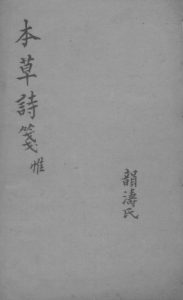 本草詩箋 惟
韻濤氏